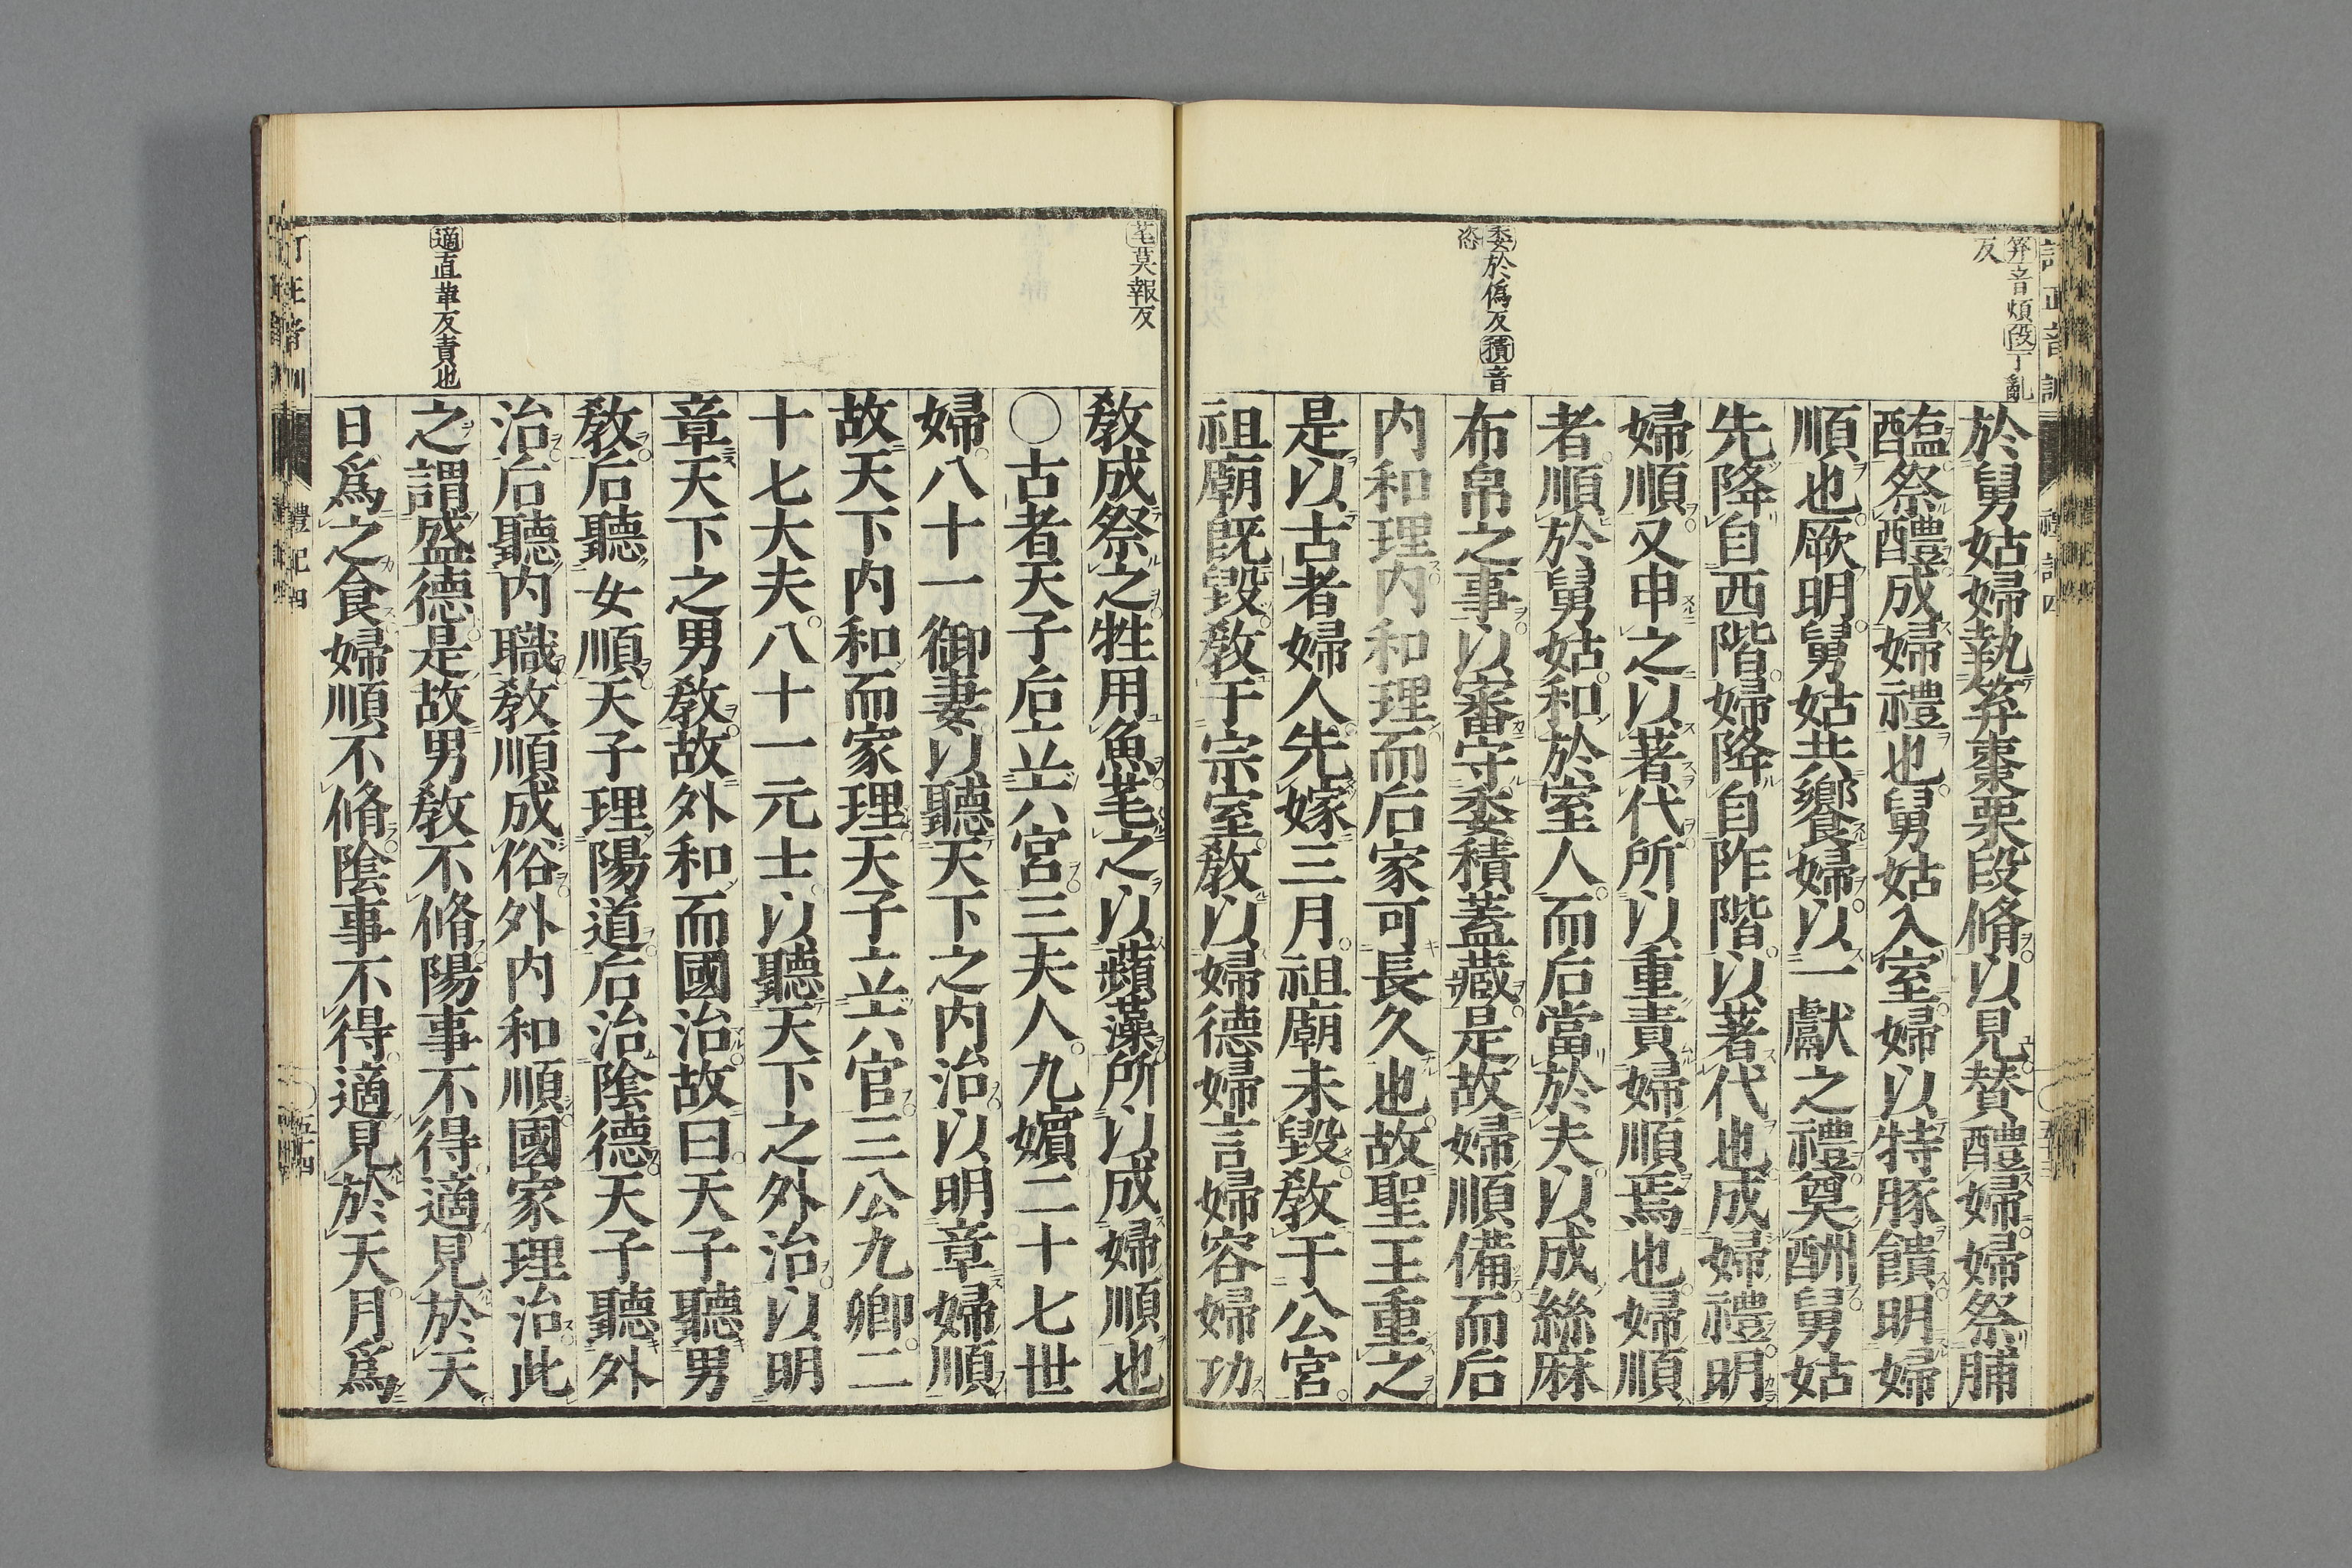 笲音煩段丁亂
反
於舅姑婦執笲棗栗段脩以見賛醴婦婦祭脯
醢祭醴成婦禮也舅姑入室婦以特豚饋明婦
順也厥明舅姑共饗婦以一獻之禮奠酬舅姑
先降自西階婦降自阼階以著代也成婦禮明
婦順又申之以著代所以重責婦順焉也婦順
者順於舅姑和於室人而后當於夫以成絲麻
委於僞反積音
恣
布帛之事以審守委積蓋藏是故婦順備而后
内和理内和理而后家可長久也故聖王重之
是以古者婦人先嫁三月祖廟未毀敎于公宮
祖廟既毀敎于宗室敎以婦德婦言婦容婦功
芼莫報反
敎成祭之牲用魚芼之以蘋藻所以成婦順也
〇古者天子后立六宮三夫人九嬪二十七世
婦八十一御妻以聽天下之内治以明章婦順
故天下内和而家理天子立六官三公九卿二
十七大夫八十一元士以聽天下之外治以明
章天下之男敎故外和而國治故曰天子聽男
敎后聽女順天子理陽道后治陰德天子聽外
治后聽内職敎順成俗外内和順國家理治此
適直革反責也
之謂盛德是故男敎不脩陽事不得適見於天
日爲之食婦順不脩陰事不得適見於天月爲
禮記四
五十四